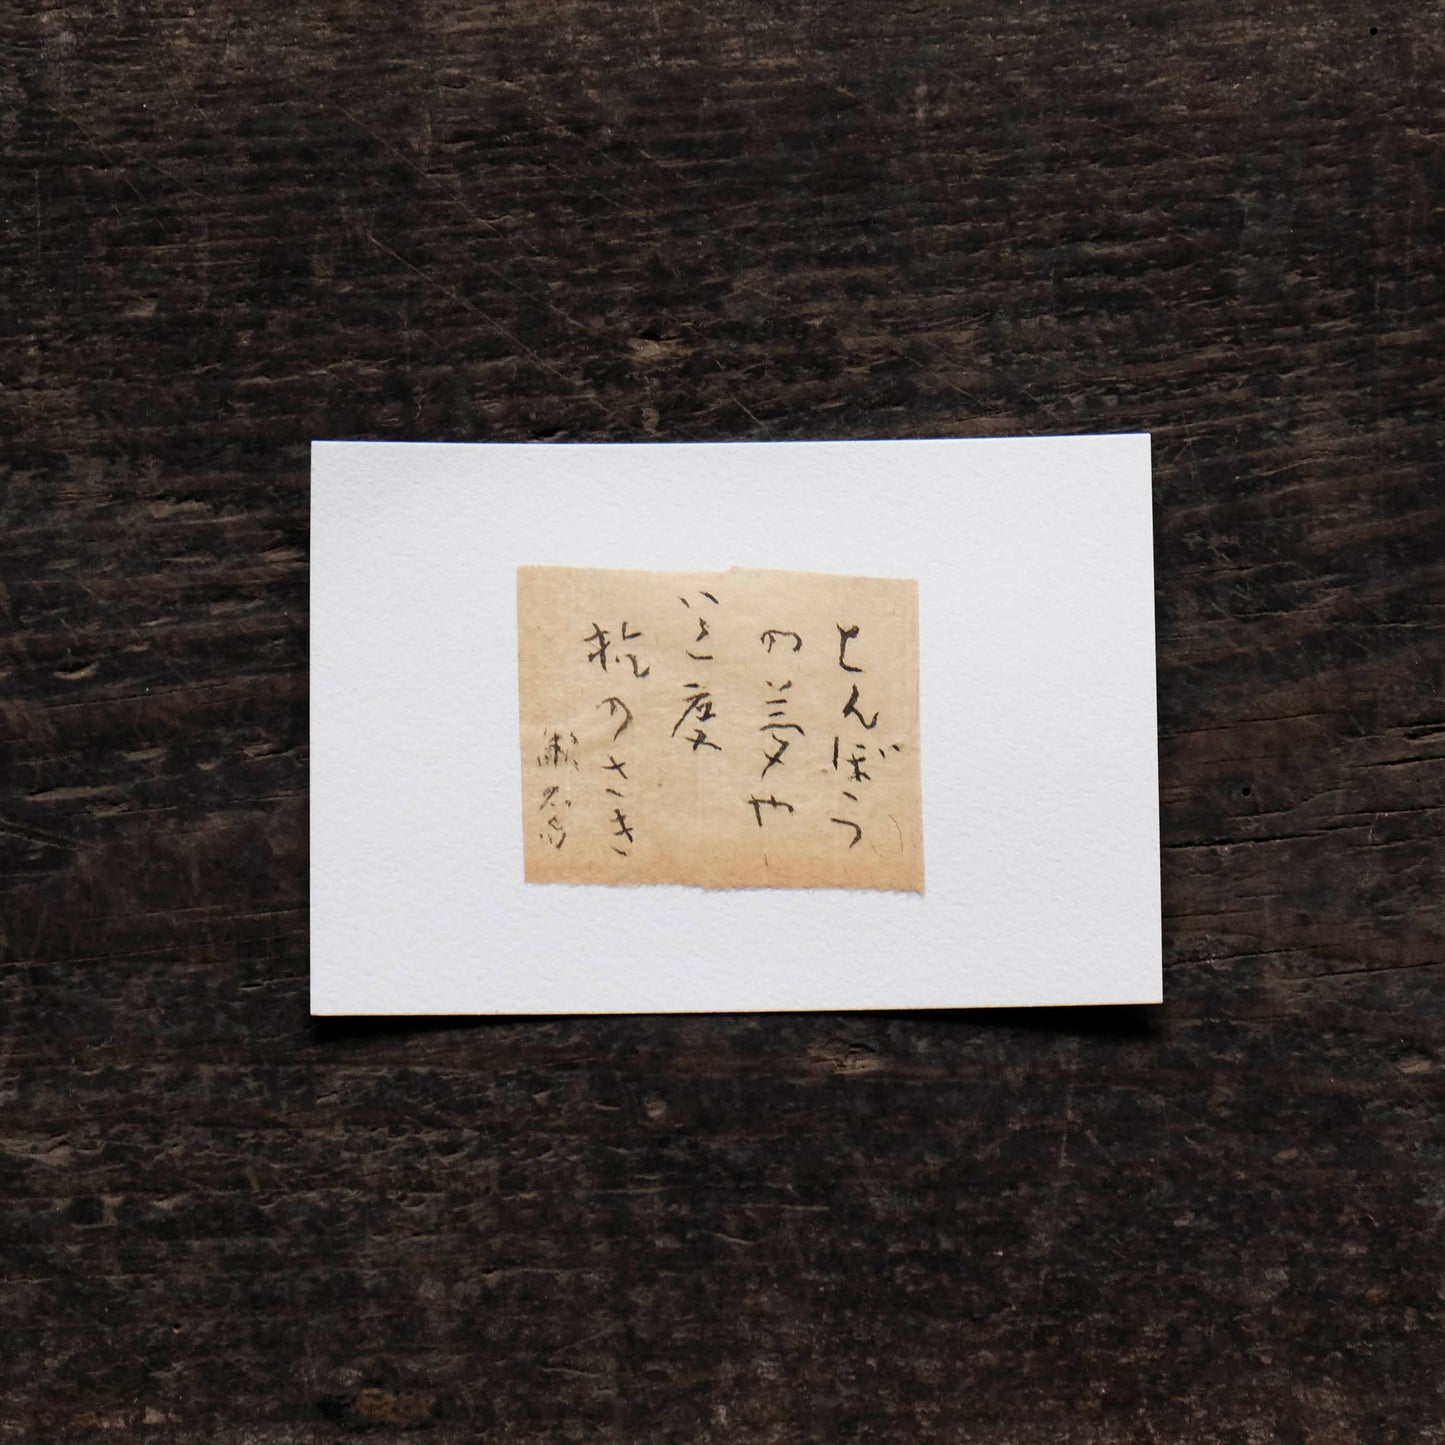 とんぼう
の夢や
いく度
杭のさき